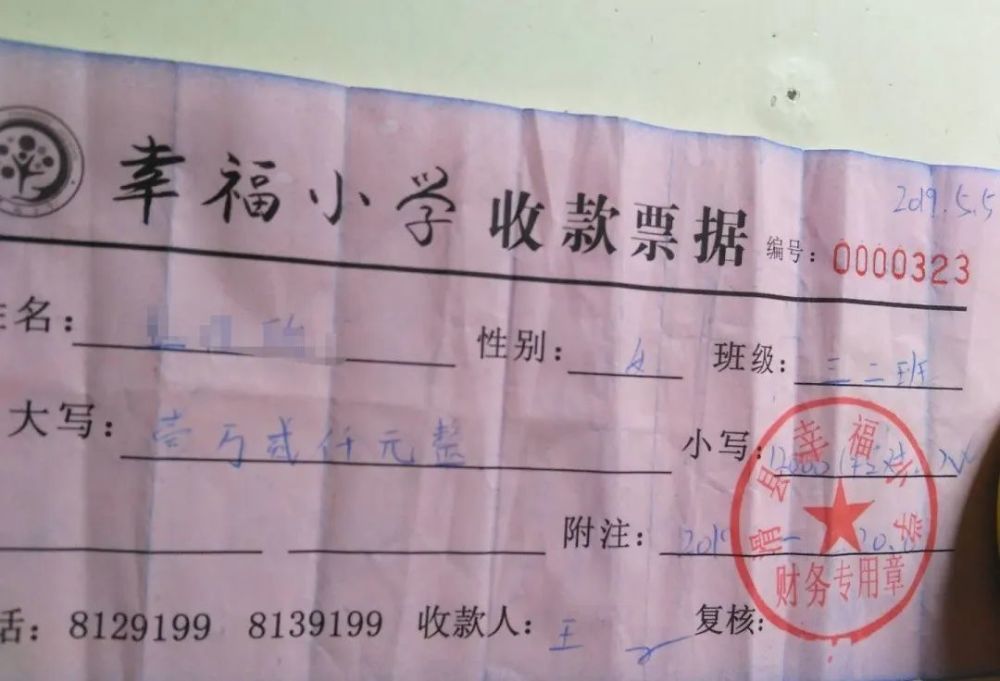 幸福小学 收款票据
2019.5.5
编号：0000323
姓名： 性别：女 班级：三二班
大写：壹万贰仟元整 小写：12000
附注：
话：8129199 8139199 收款人：王 复核：
滑县幸福小学
财务专用章